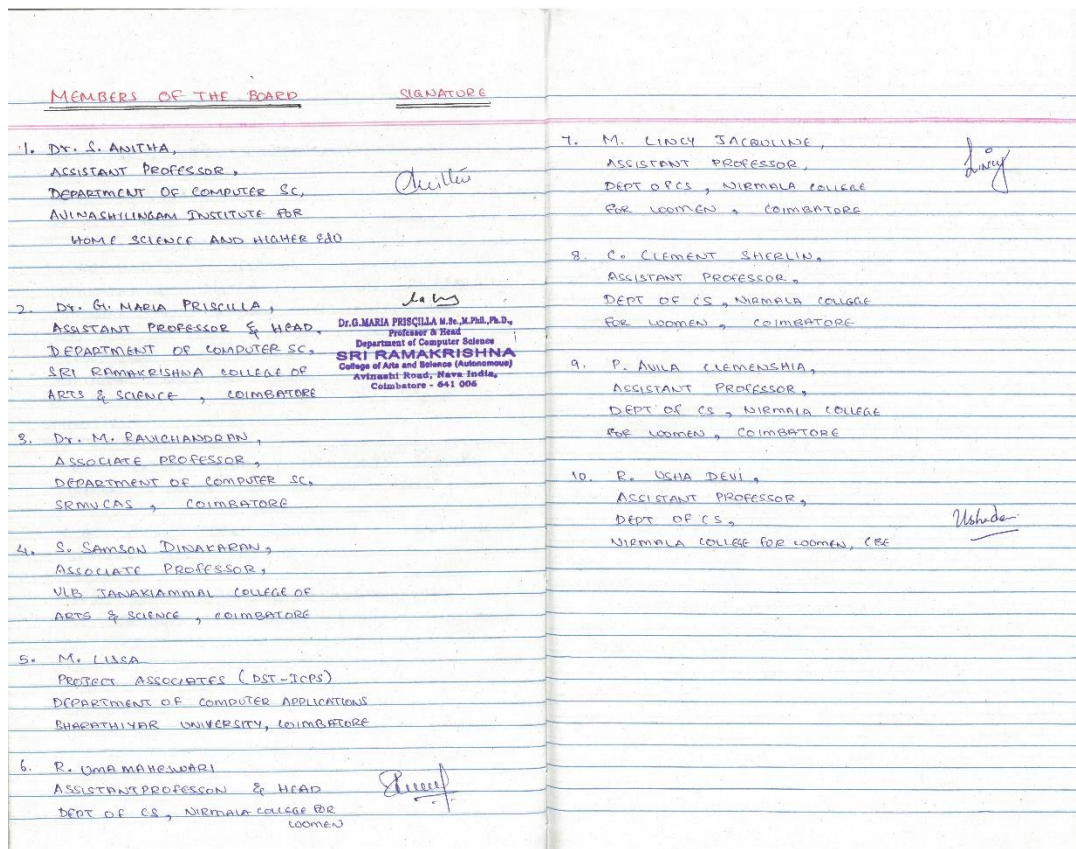 MEMBERS OF THE BOARD SIGNATURE
1. Dr. S. ANITHA,
ASSISTANT PROFESSOR,
DEPARTMENT OF COMPUTER SC,
AVINASHILINGAM INSTITUTE FOR
HOME SCIENCE AND HIGHER EDU
2. Dr. G. MARIA PRISCILLA,
ASSISTANT PROFESSOR & HEAD,
DEPARTMENT OF COMPUTER SC,
SRI RAMAKRISHNA COLLEGE OF
ARTS & SCIENCE, COIMBATORE
Dr.G.MARIA PRISCILLA M.Sc.,M.Phil.,Ph.D.,
Professor & Head
Department of Computer Science
SRI RAMAKRISHNA
College of Arts and Science (Autonomous)
Avinashi Road, Nava India,
Coimbatore - 641 006
3. Dr. M. RAVICHANDRAN,
ASSOCIATE PROFESSOR,
DEPARTMENT OF COMPUTER SC,
SRMVCAS, COIMBATORE
4. S. SAMSON DINAKARAN,
ASSOCIATE PROFESSOR,
VLB JANAKIAMMAL COLLEGE OF
ARTS & SCIENCE, COIMBATORE
5. M. LISSA
PROJECT ASSOCIATES (DST-ICPS)
DEPARTMENT OF COMPUTER APPLICATIONS
BHARATHIYAR UNIVERSITY, COIMBATORE
6. R. UMA MAHESWARI
ASSISTANT PROFESSOR & HEAD
DEPT OF CS, NIRMALA COLLEGE FOR
WOMEN
7. M. LINCY JACQULINE,
ASSISTANT PROFESSOR,
DEPT OF CS, NIRMALA COLLEGE
FOR WOMEN, COIMBATORE
Lincy
8. C. CLEMENT SHERLIN,
ASSISTANT PROFESSOR,
DEPT OF CS, NIRMALA COLLEGE
FOR WOMEN, COIMBATORE
9. P. AVILA CLEMENSHIA,
ASSISTANT PROFESSOR,
DEPT OF CS, NIRMALA COLLEGE
FOR WOMEN, COIMBATORE
10. R. USHA DEVI,
ASSISTANT PROFESSOR,
DEPT OF CS,
NIRMALA COLLEGE FOR WOMEN, CBE